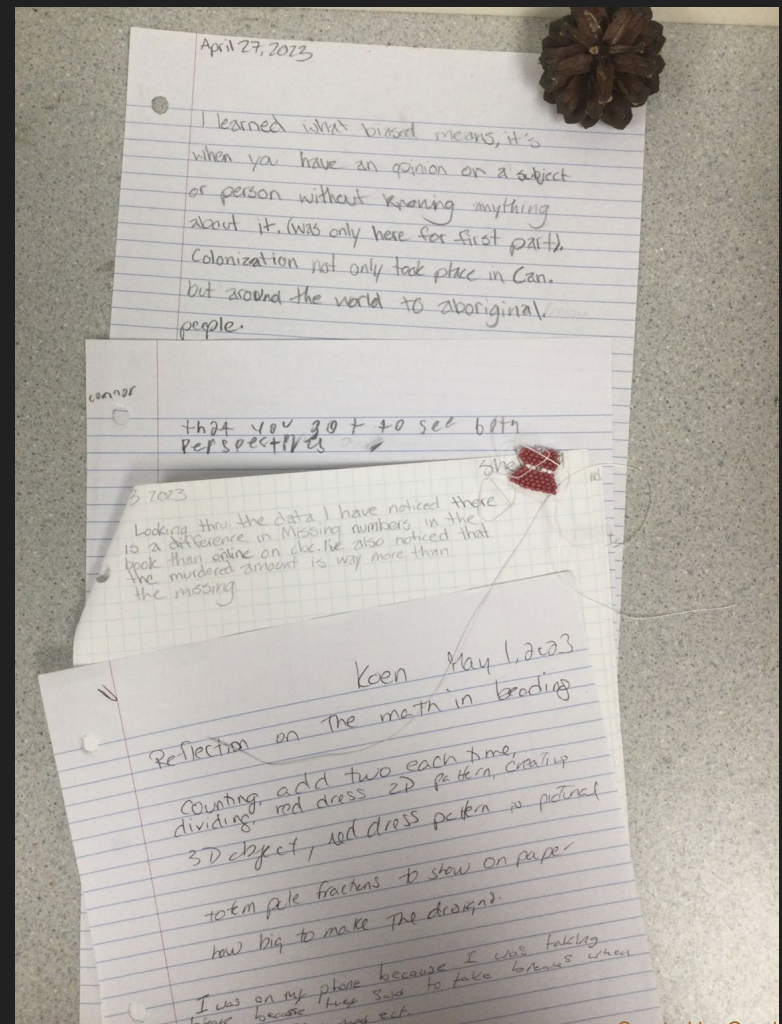 April 27, 2023
I learned what biased means, it's
when you have an opinion on a subject
or person without knowing anything
about it. (was only here for first part).
Colonization not only took place in Can.
but around the world to aboriginal
people.
connor
that you got to see both
Perspectives
She
3 2023
Looking thru the data I have noticed there
is a difference in Missing numbers in the
book than online on cbc. I've also noticed that
the murdered amount is way more than
the missing
Koen May 1, 2023
Reflection on The math in beading
Counting, add two each time,
dividing, red dress 2D pattern, creating
3D object, red dress pattern is pictural
totem pole fractions to show on paper
how big to make The
I was on my phone because I was taking
because they said to take when
ect.